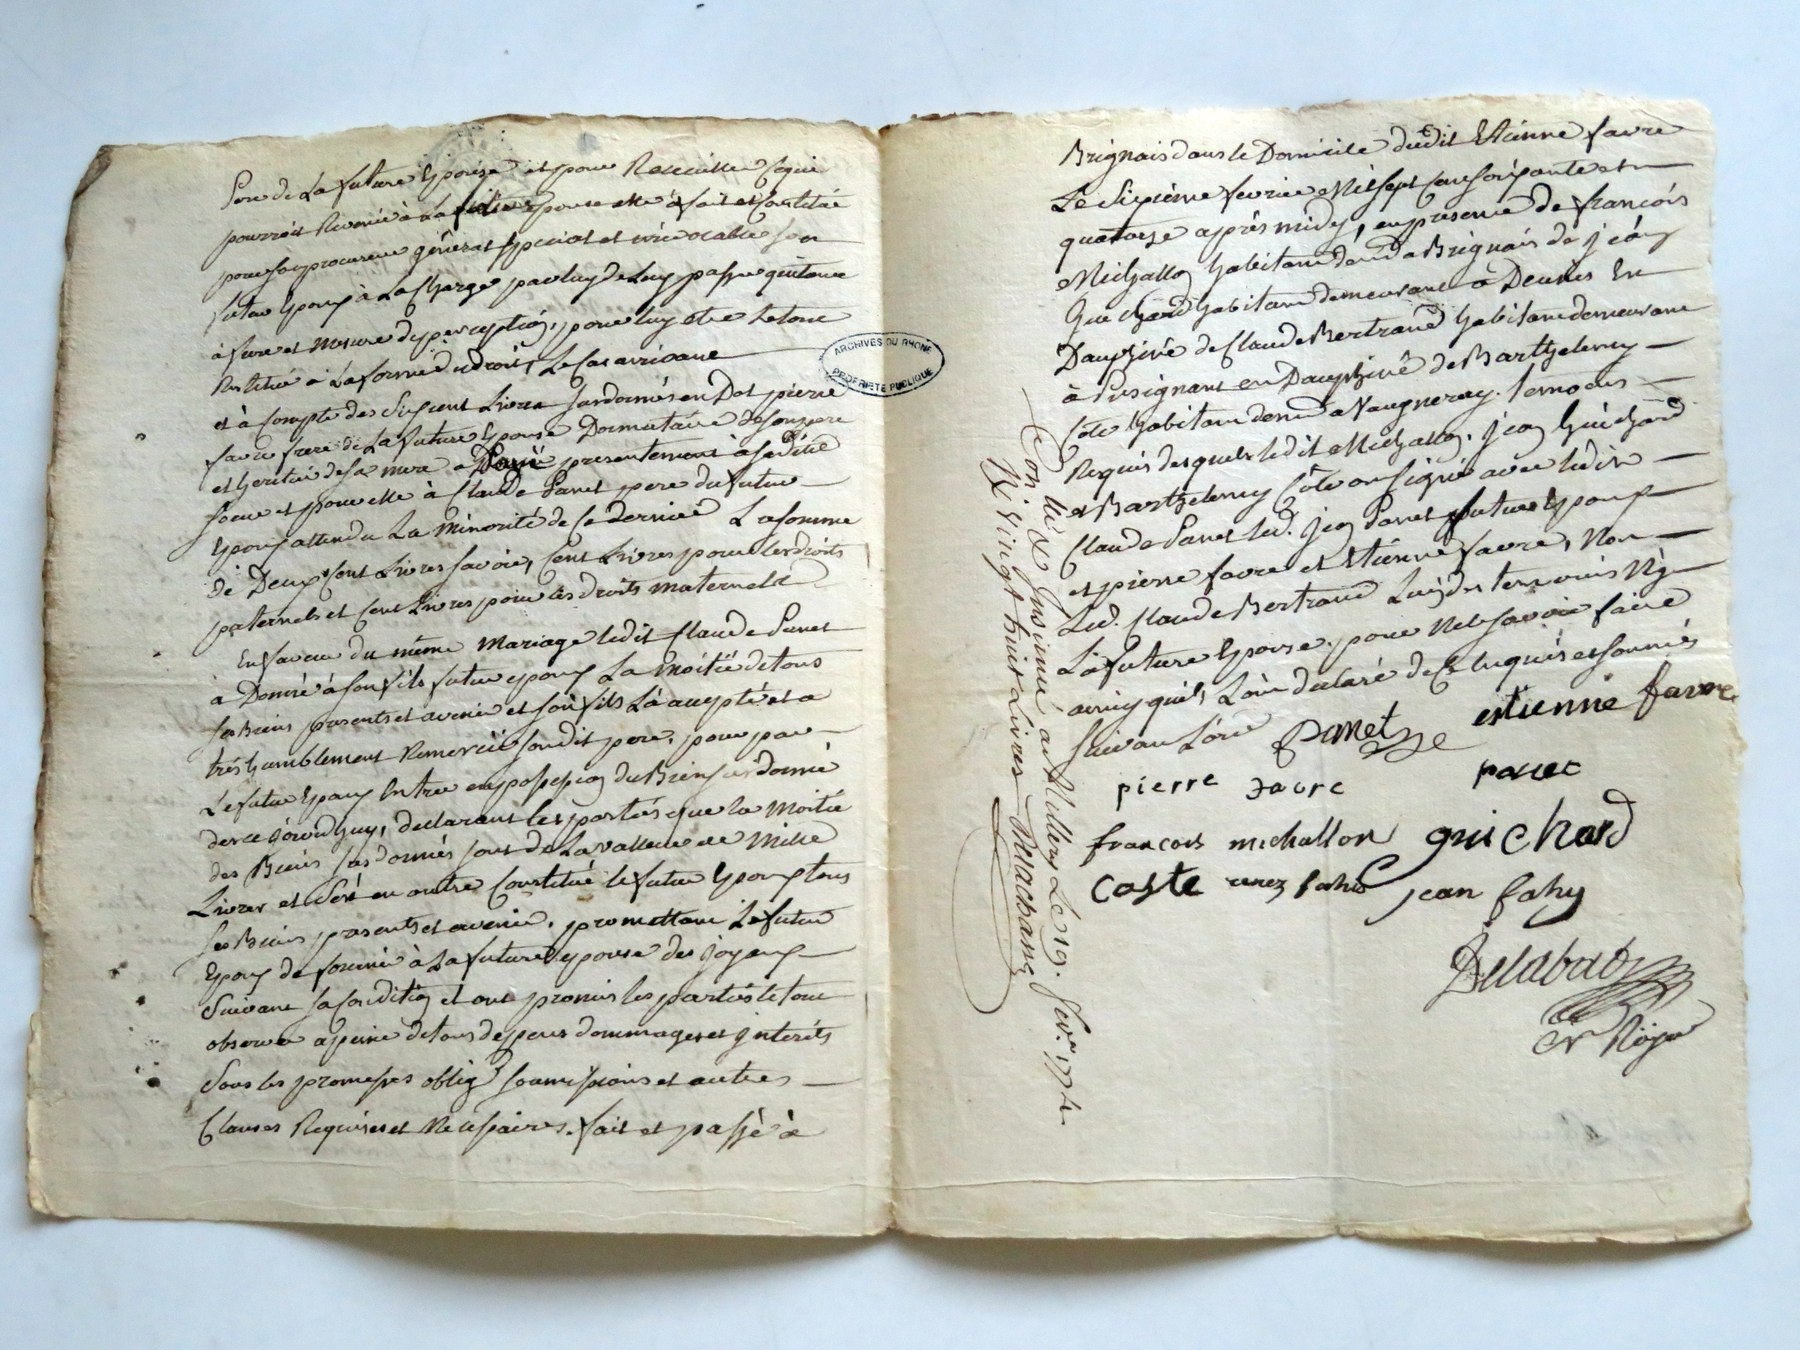 Pere de La future Epouse et pour Recueillir Ce qui
pourroit Revenir à La future epouse elle a fait et Constitué
pour son procureur général special et irrévocable son
futur Epoux à La Charge par luy de Leur passer quittance
à fure et mesure de perception, pour luy etre Le tout
Restitué à La forme du droit, Le Cas arrivant
et à Compte des Susdent Livres Sus données en Dot pierre
favre frere de La future Epouse Donnataire de son pere
et heritier de sa mere a Payé presentement à sa dite
soeur et pour elle à Claude Panet pere du futur
Epoux attendu La Minorité de Ce dernier La somme
de Deux Cent Livres savoir, Cent Livres pour les droits
paternels et Cent Livres pour les droits maternels
En faveur du même Mariage ledit Claude Panet
à Donné à son fils futur epoux La moitié de tous
ses Biens presents et avenir et son fils L'a accepté et a
très humblement Remercié son dit pere, pour par
Le futur Epoux Entrer en possession du Bien sus donné
des ce jourd'huy, declarant les parties que la Moitié
des Biens sus donnés sont de La valleur de Mille
Livres et s'est en outre Constitué le futur Epoux tous
ses Biens presents et avenir, promettant Le futur
Epoux de fournir à La future epouse des Joyaux
Suivant sa Condition et ont promis les parties le tout
observer a peine de tous depens dommages et jnterêts
Sous les promesses oblig. soumissions et autres
Clauses Requises et Necessaires. fait et passé à
ARCHIVES DU RHONE
PROPRIÉTÉ PUBLIQUE
Brignais dans le Domicile dudit Etienne favre
Le Sixième fevrier Mil sept Cent soixante et
quatorze après midy, en presence de françois
Michallon habitant dem.t à Brignais de jean
Guichard habitant demeurant à Deuxes En
Dauphiné de Claude Bertrand habitant demeurant
à Pusignant en Dauphiné de Barthelemy
Côte habitant dem.t a Vaugneray. temoins
Requis desquels ledit Michallon, jean Guichard
et Barthelemy Côte on signé avec ledit
Claude Panet led. jean Panet futur Epoux
et pierre favre et Etienne favre, Non
Led. Claude Bertrand L'un des temoins Ny
La future Epouse pour Ne le savoir faire
ainsy qu'ils L'ont declaré de Ce Enquis et sommés
suivant L'ord
panet
estienne favre
pierre favre
panet
françois michallon
guichard
Coste
jean fahy
Delabat
Con.llé & Insinué au Le 19. fev.er 1774.
R. Vingt huit Livres